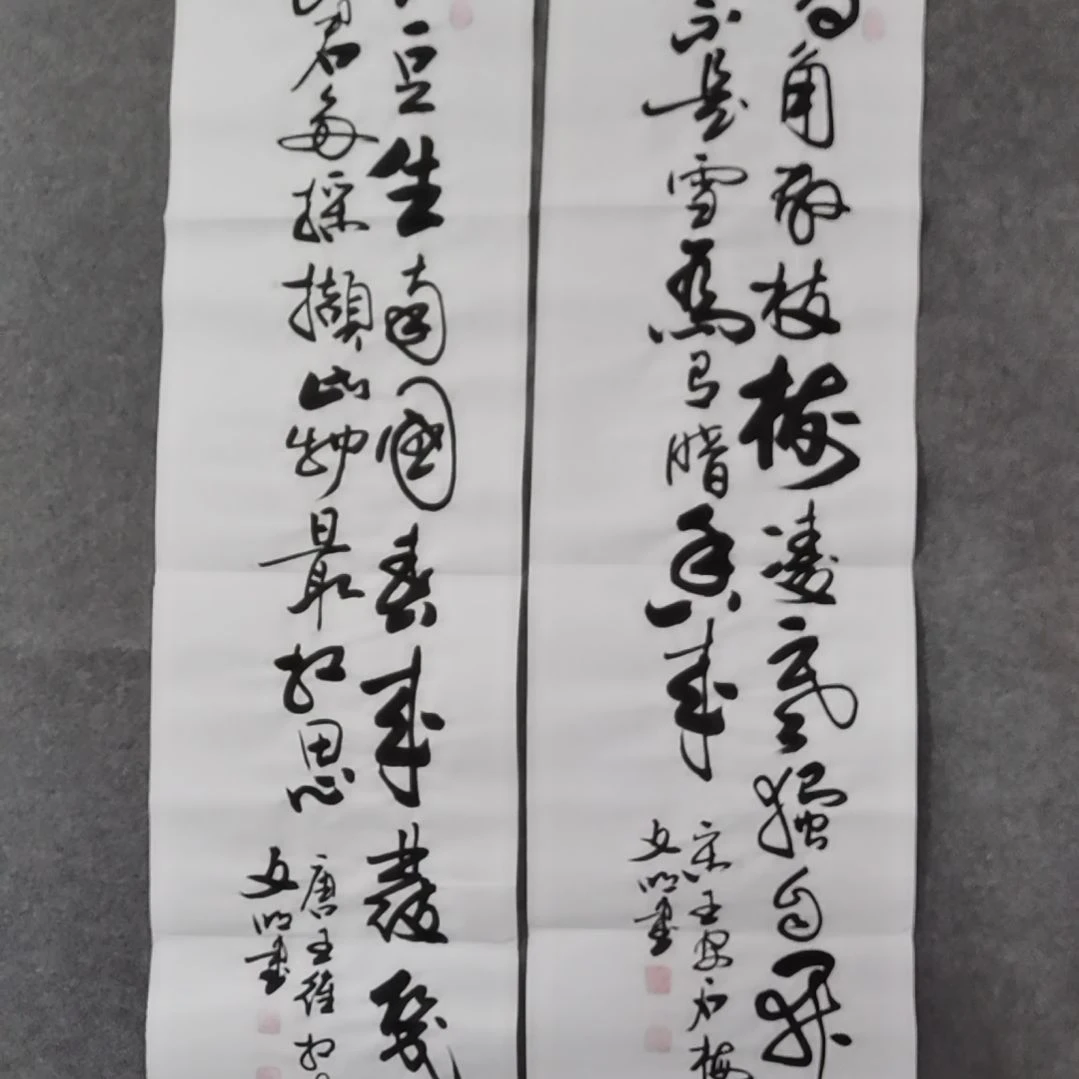 角數枝梅凌寒獨自開
不是雪為有暗香來
宋王安石梅
文明書
豆生南國春來發幾
君多採擷此物最相思
唐王維相
文明書